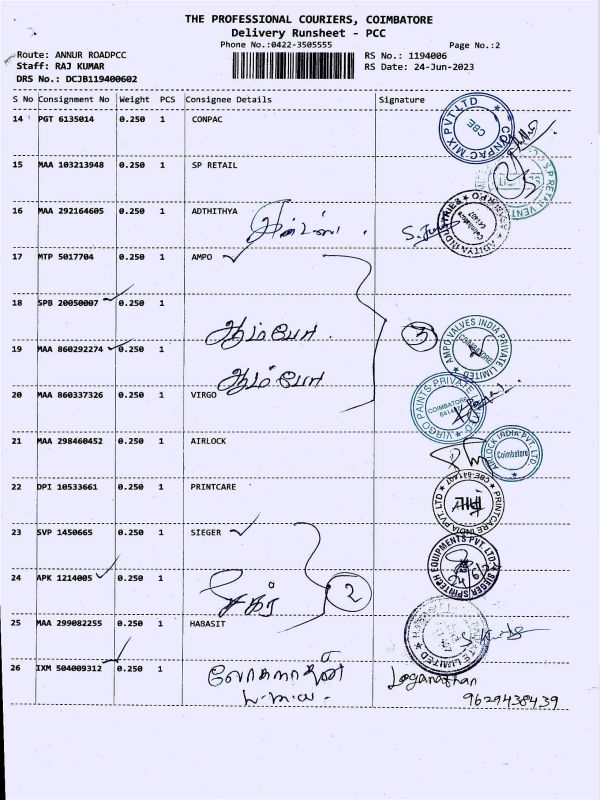 THE PROFESSIONAL COURIERS, COIMBATORE
Delivery Runsheet - PCC
Phone No.:0422-3505555
Page No.:2
Route: ANNUR ROADPCC
RS No.: 1194006
Staff: RAJ KUMAR
RS Date: 24-Jun-2023
DRS No.: DCJB119400602
S No Consignment No Weight PCS Consignee Details Signature
14 PGT 6135014 0.250 1 CONPAC
CONPAC MIX PVT LTD CBE
15 MAA 103213948 0.250 1 SP RETAIL
16 MAA 292164605 0.250 1 ADTHITHYA
ADITYA INDUSTRIES Coimbatore 641407
17 MTP 5017704 0.250 1 AMPO
18 SPB 20050007 0.250 1
ஆம்போ. 3
19 MAA 860292274 0.250 1
AMPO VALVES INDIA PRIVATE LIMITED COIMBATORE
ஆம்போ
20 MAA 860337326 0.250 1 VIRGO
VIRGO PAINTS PRIVATE LIMITED COIMBATORE
21 MAA 298460452 0.250 1 AIRLOCK
AIRLOCK INDIA PVT. LTD. Coimbatore
22 DPI 10533661 0.250 1 PRINTCARE
PRINTCARE INDIA PVT. LTD CBE-641407
23 SVP 1450665 0.250 1 SIEGER
SIEGER SPINTECH EQUIPMENTS PVT. LTD.
24 APK 1214005 0.250 1
2
25 MAA 299082255 0.250 1 HABASIT
26 IXM 504009312 0.250 1
லோகநாதன் Loganathan
9629438439